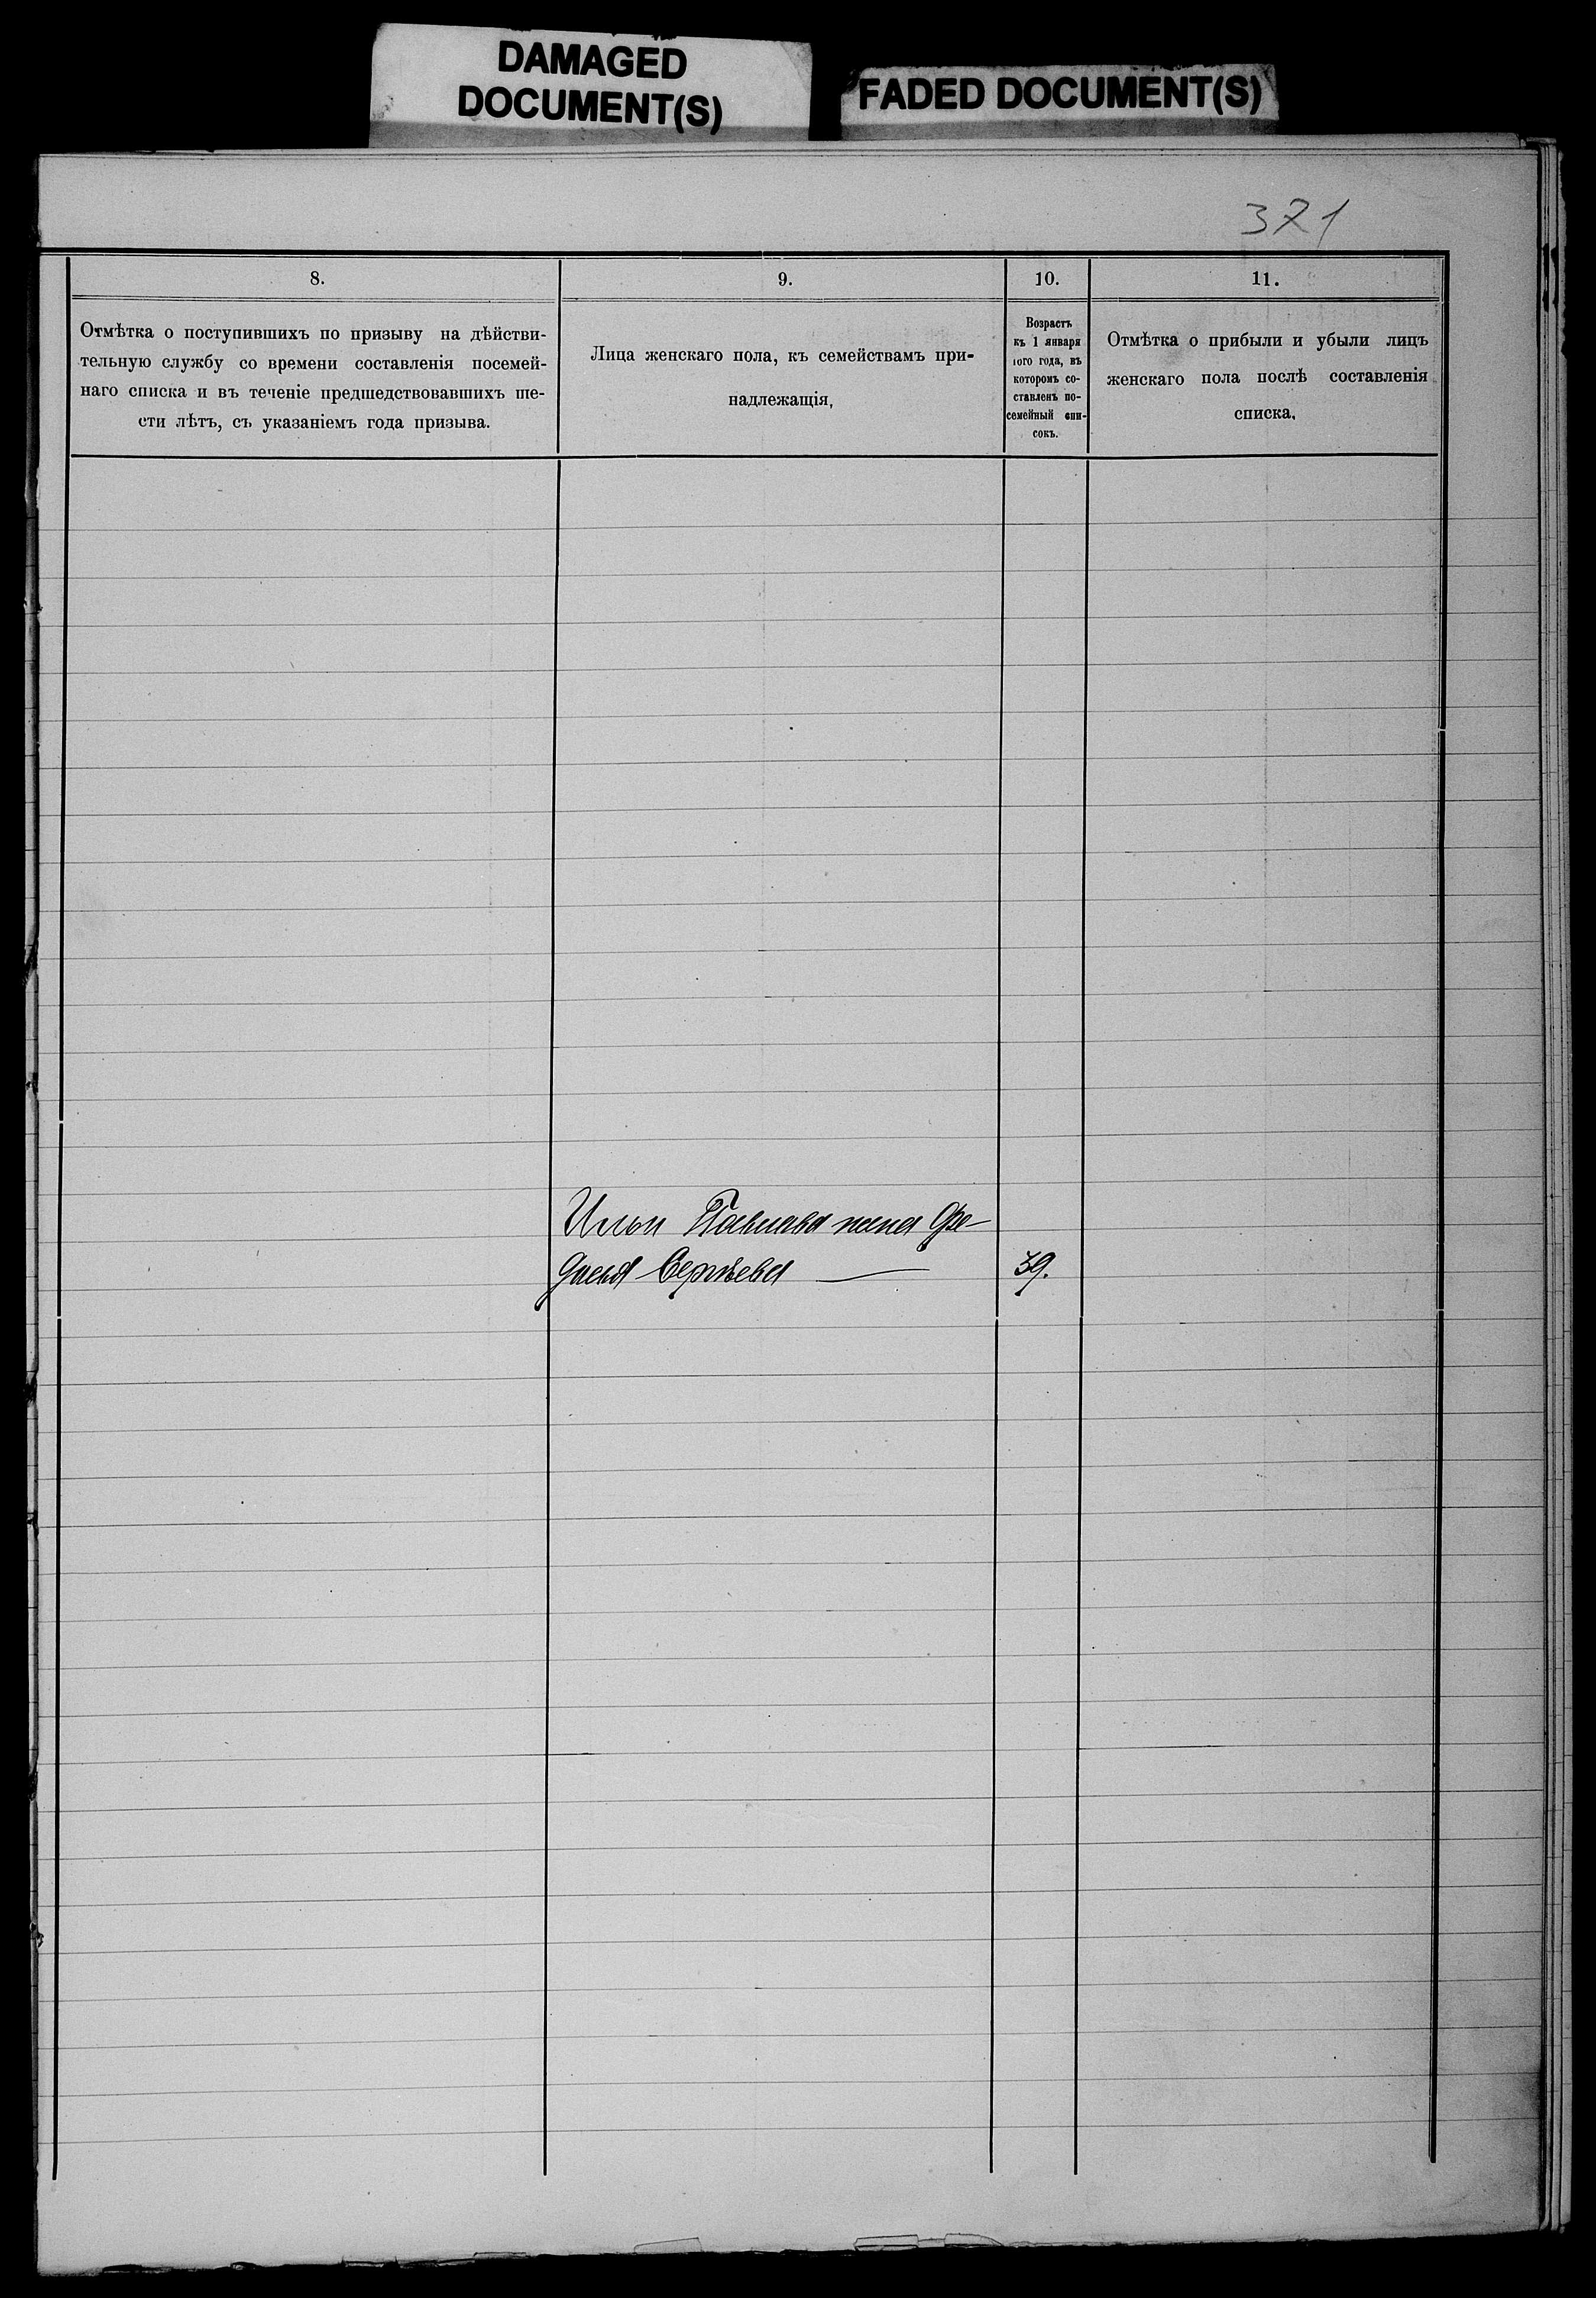 DAMAGED
DOCUMENT(S)
FADED DOCUMENT(S)
371
8.
9.
10.
11.
Отмѣтка о поступившихъ по призыву на дѣйстви-
тельную службу со времени составленія посемей-
наго списка и въ теченіе предшедствовавшихъ ше-
сти лѣтъ, съ указаніемъ года призыва.
Лица женскаго пола, къ семействамъ при-
надлежащія,
Возрастъ
къ 1 января
1ого года, въ
которомъ со-
ставленъ по-
семейный спи-
сокъ.
Отмѣтка о прибыли и убыли лицъ
женскаго пола послѣ составленія
списка.
Ильи Павлова жена Фе-
досья Сергѣева
39.